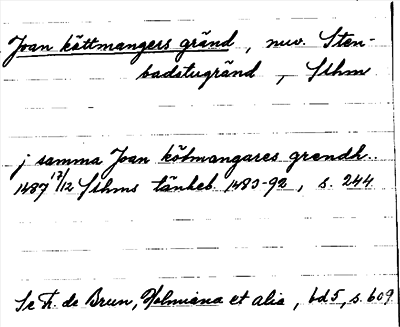 Joan köttmangers gränd, nuv. Sten-
badstugränd, Sthm
j samma Joan kötmangares grendh..
1487 17/12 Sthms tänkeb. 1483-92, s. 244
Se F. de Brun, Holmiana et alia, bd 5, s. 609